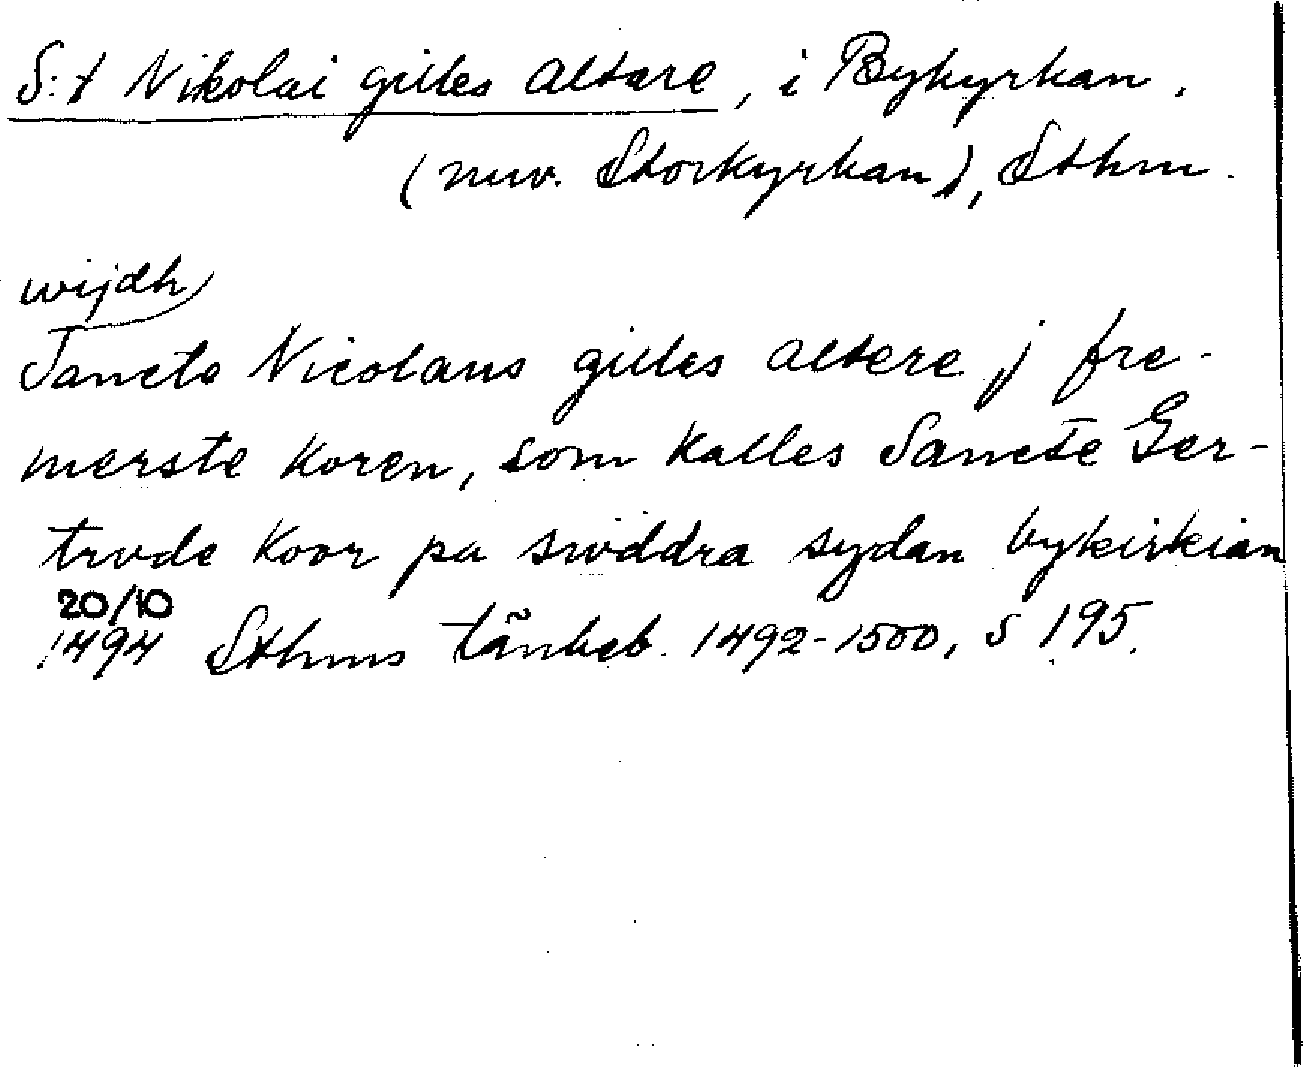 S:t Nikolai gilles altare, i Bykyrkan.
(nuv. Storkyrkan), Sthm.
wijdh
Sancte Nicolaus gilles altere j fre-
merste koren, som kalles Sancte Ger-
trvde koor pa swddra sydan bykirkian
20/10
1494 Sthms tänkeb. 1492-1500, s 195.